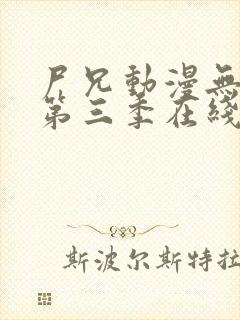 尸兄動漫無
第三季在綫
斯波尔斯特拉